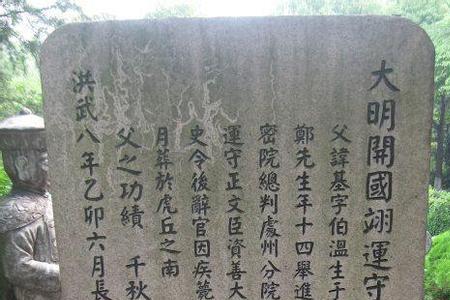 大明開國翊運守
父諱基字伯溫生于
鄭先生年十四舉進
密院總判處州分院
運守正文臣資善大
史令後辭官因疾薨
月葬於虎丘之南
父之功績 千秋
洪武八年乙卯六月長